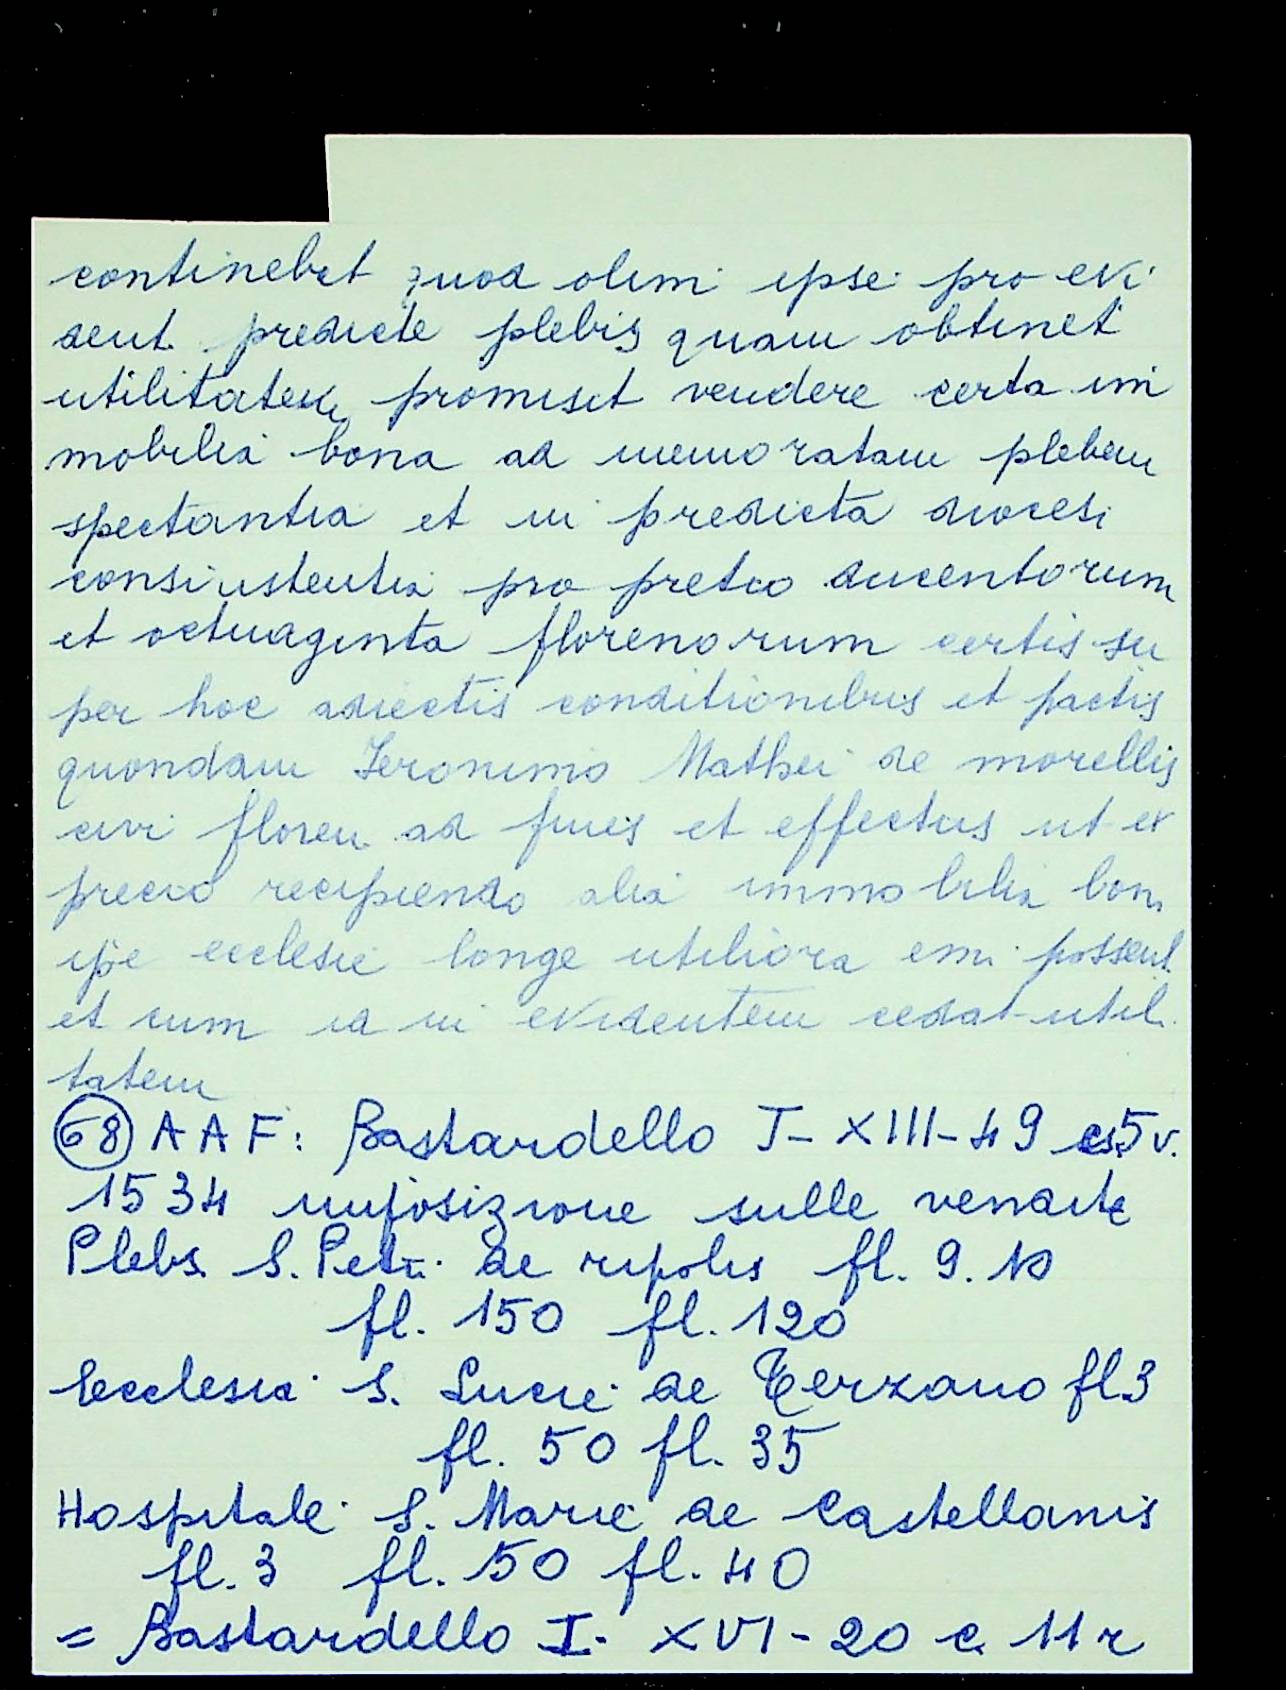 continebat quod olim ipse pro evi
dent. predicte plebis quam obtinet
utilitatem promisit vendere certa im
mobilia bona ad memoratam plebem
spectantia et in predicta diocesi
consinstentia pro pretio ducentorum
et octuaginta florenorum certis su
per hoc adiectis conditionibus et pactis
quondam Jeronimo Mathei de morellis
civi floren. ad fines et effectus ut ex
precio recipiendo alia immobilia bona
ipse ecclesie longe utiliora emi possent
et cum id in evidentem cedat utili
tatem
(68) AAF: Bastardello I-XIII-49 cs. 5v.
1534 imposizione sulle vendite
Plebs. S. Petri de ripolis fl. 9. 10
fl. 150 fl. 120
Ecclesia S. Lucie de Terzano fl. 3
fl. 50 fl. 35
Hospitale S. Marie de Castellanis
fl. 3 fl. 50 fl. 40
= Bastardello I. XVI-20 c. 11r